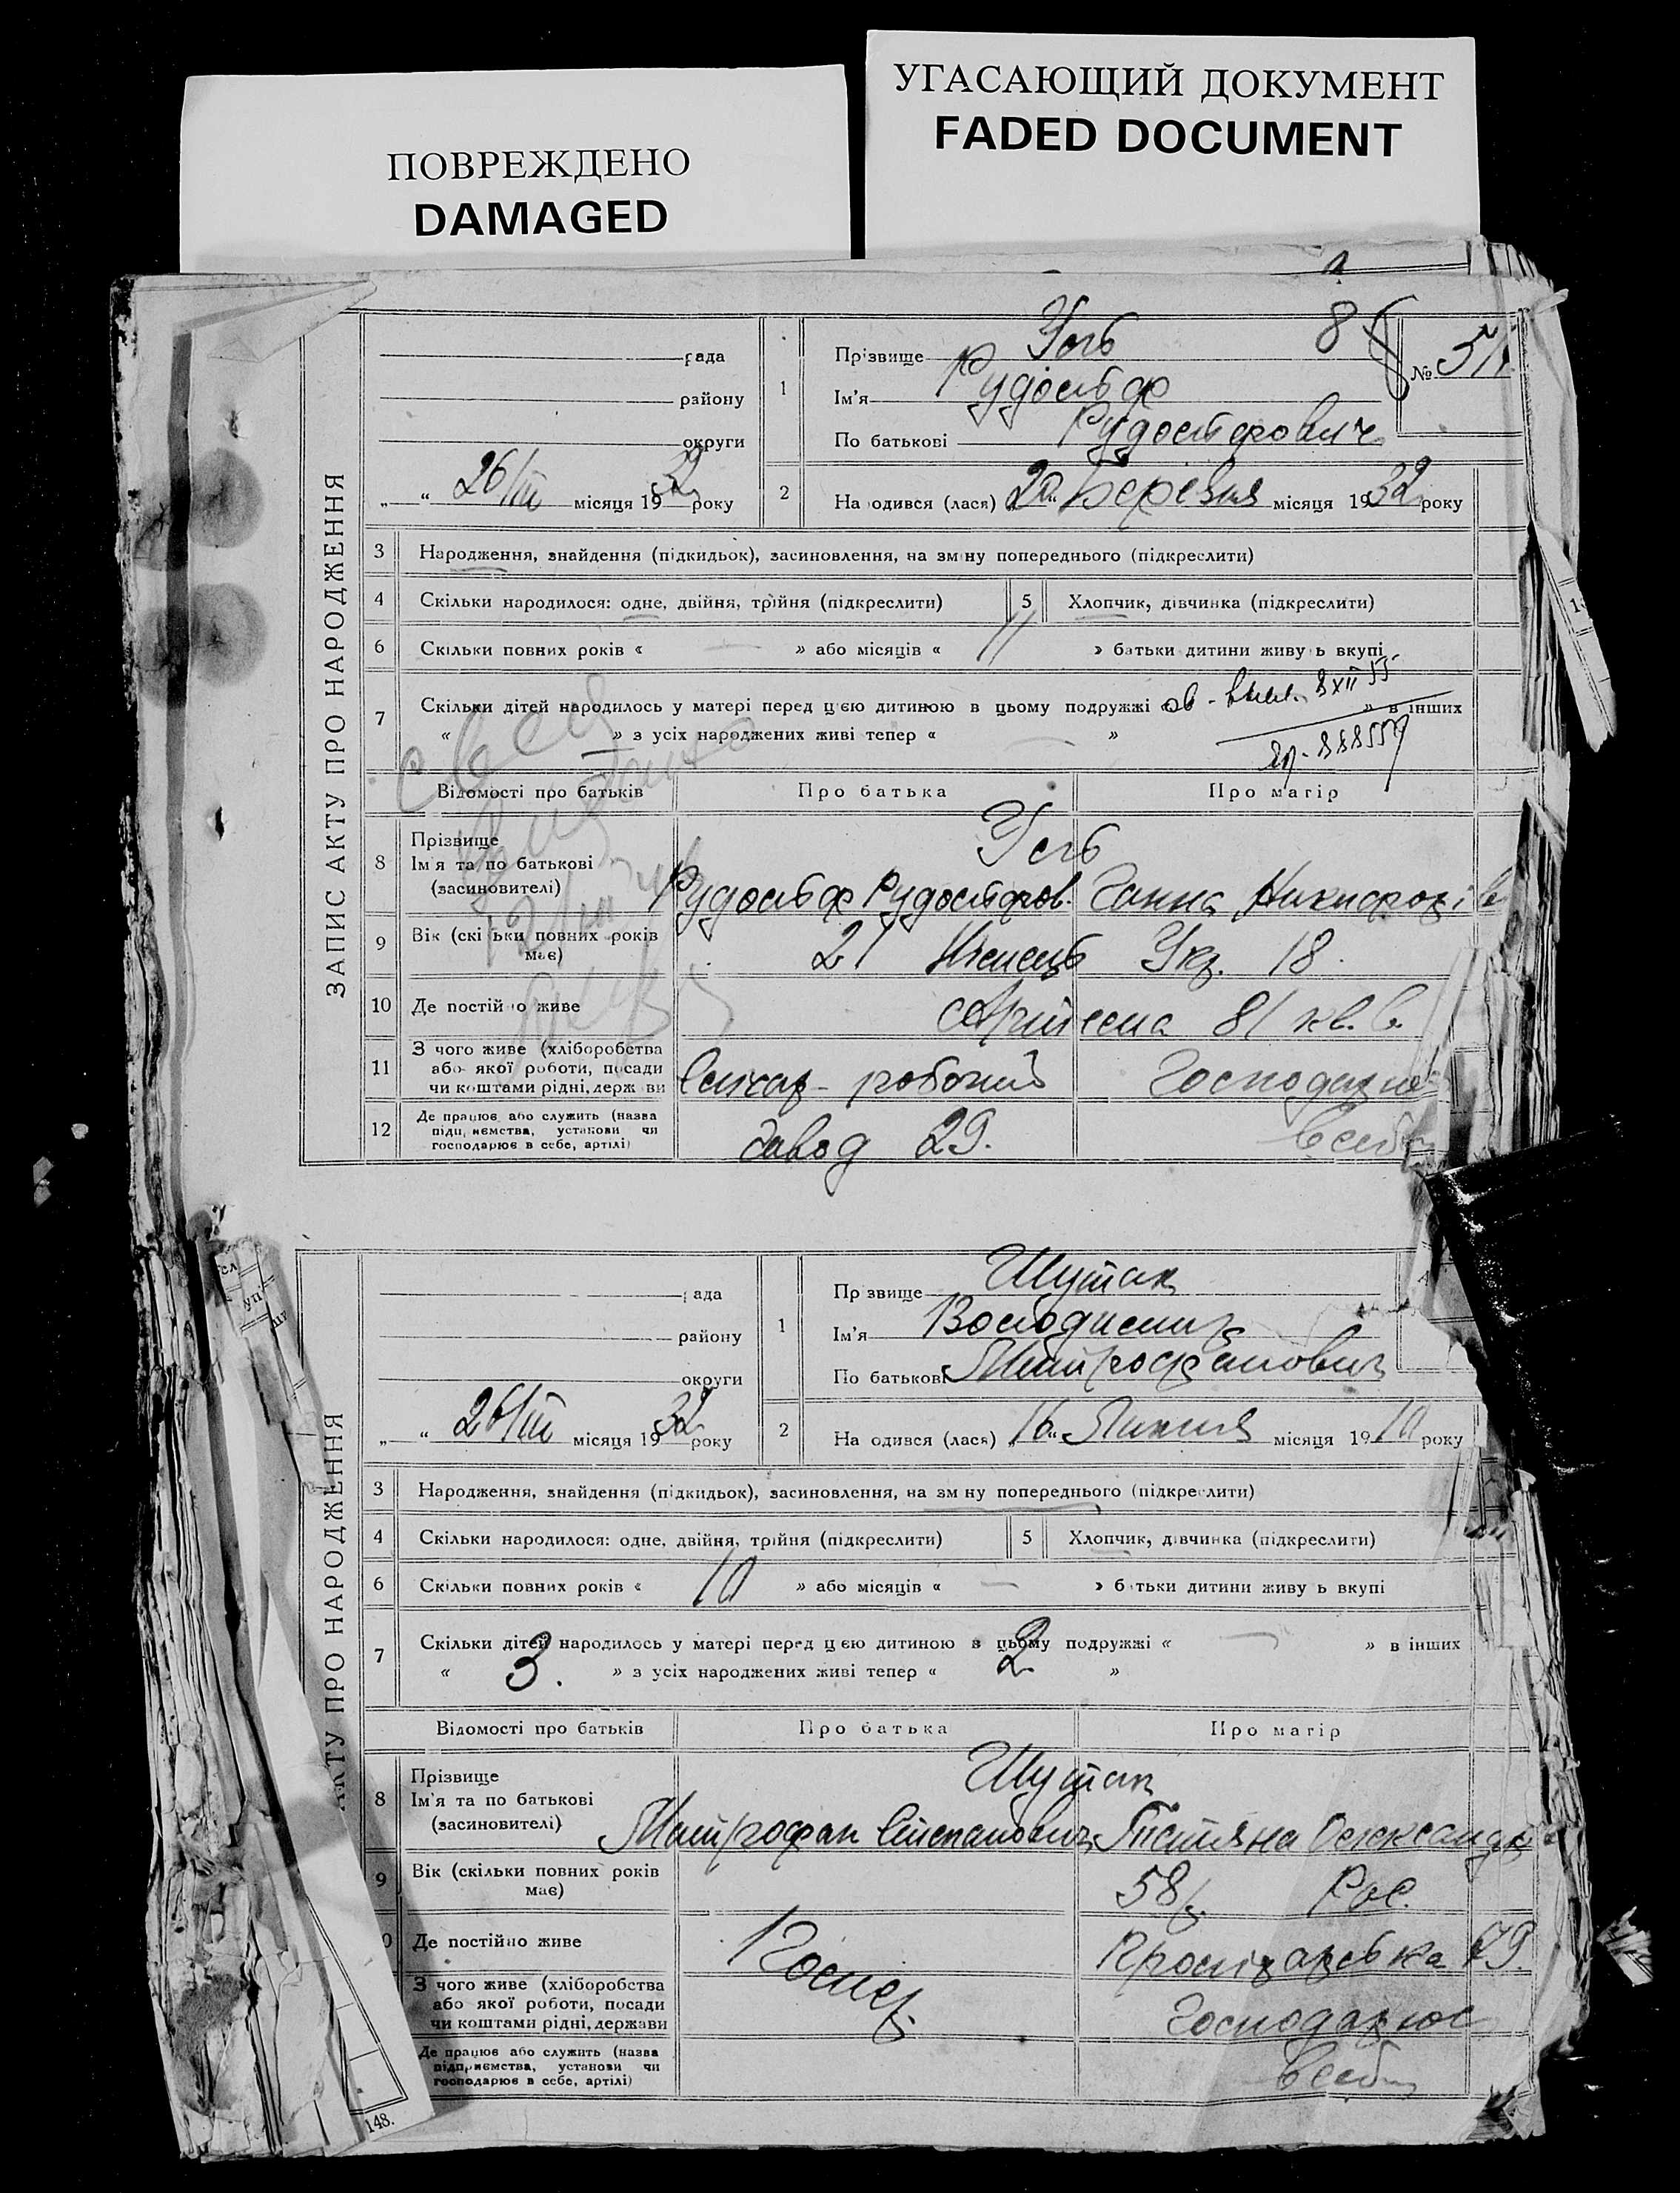 ПОВРЕЖДЕНО
DAMAGED
УГАСАЮЩИЙ ДОКУМЕНТ
FADED DOCUMENT
ЗАПИС АКТУ ПРО НАРОДЖЕННЯ
рада
району
округи
„ “ 26/III місяця 1932 року
1
Прізвище
Ім'я Рудольф
По батькові Рудольфович
№
2
На одився (лася) 20 Березня місяця 1932 року
3 Народження, знайдення (підкидьок), засиновлення, на зм ну попереднього (підкреслити)
4 Скільки народилося: одне, двійня, трійня (підкреслити)
5 Хлопчик, дівчинка (підкреслити)
6 Скільки повних років « — » або місяців « 11 » батьки дитини живу ь вкупі
7 Скільки дітей народилось у матері перед цією дитиною в цьому подружжі « » в інших
« — » з усіх народжених живі тепер « — »
Відомості про батьків
Про батька
Про матір
8 Прізвище
Ім'я та по батькові
(засиновителі)
Рудольф Рудольфов. Ганна Никифорів
9 Вік (скі ьки повних років має) 21 Німець Укр. 18
10 Де постій о живе 81 кв. 6.
11 З чого живе (хліборобства
або якої роботи, посади
чи коштами рідні, держ ви
робочий
Господарює
12 Де працює або служить (назва
підп иємства, установи чи
господарює в себе, артілі)
завод 29.
в себе
АКТУ ПРО НАРОДЖЕННЯ
рада
району
округи
„ “ 26/III місяця 1932 року
1
Пр звище Шутак
Ім'я Володимир
По батькові Митрофанович
2
На одився (лася) 16 Липня місяця 1910 року
3 Народження, знайдення (підкидьок), засиновлення, на зм ну попереднього (підкреслити)
4 Скільки народилося: одне, двійня, трійня (підкреслити)
5 Хлопчик, дівчинка (підкреслити)
6 Скільки повних років « 10 » або місяців « — » б тьки дитини живу ь вкупі
7 Скільки дітей народилось у матері перед цією дитиною в цьому подружжі « — » в інших
« 3. » з усіх народжених живі тепер « 2 »
Відомості про батьків
Про батька
Про матір
8 Прізвище
Ім'я та по батькові
(засиновителі)
Шутак
Митрофан Степанович Тетяна Олександр
9 Вік (скільки повних років має) 58 р. Рос.
0 Де постійно живе
Помер
79.
З чого живе (хліборобства
або якої роботи, посади
чи коштами рідні, держави
Господарює
Де працює або служить (назва
підприємства, установи чи
господарює в себе, артілі)
в себе
148.